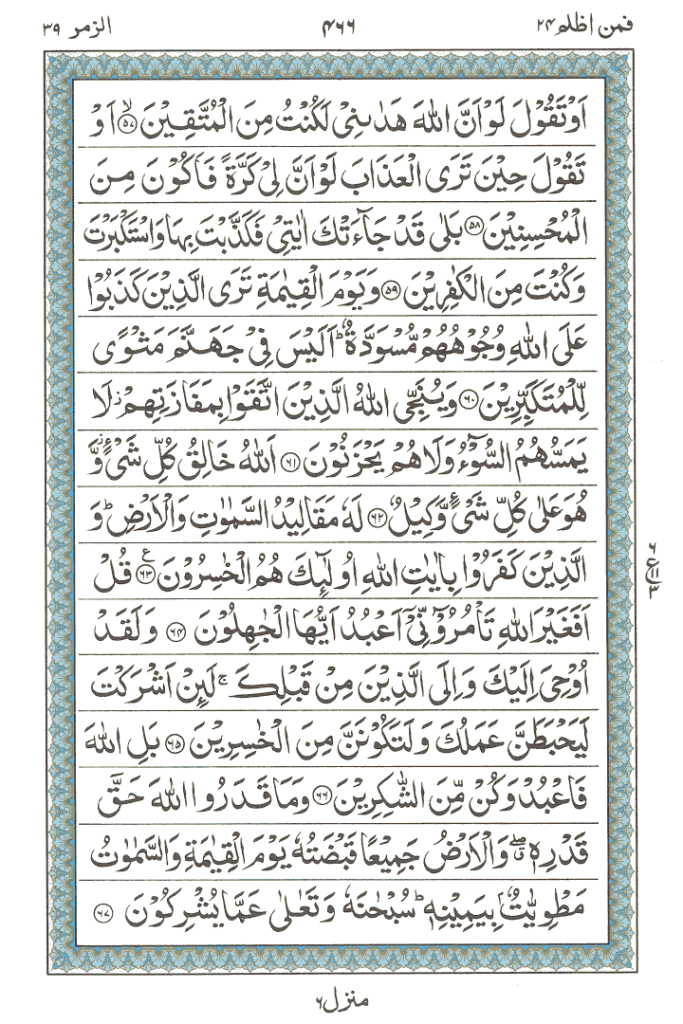 فمن اظلم ۲۴ ۴۶۶ الزمر ۳۹
اَوْ تَقُوْلَ لَوْ اَنَّ اللّٰهَ هَدٰىنِیْ لَكُنْتُ مِنَ الْمُتَّقِیْنَ ۙ﴿۵۷﴾ اَوْ
تَقُوْلَ حِیْنَ تَرَی الْعَذَابَ لَوْ اَنَّ لِیْ كَرَّةً فَاَكُوْنَ مِنَ
الْمُحْسِنِیْنَ ﴿۵۸﴾ بَلٰی قَدْ جَآءَتْكَ اٰیٰتِیْ فَكَذَّبْتَ بِهَا وَاسْتَكْبَرْتَ
وَكُنْتَ مِنَ الْكٰفِرِیْنَ ﴿۵۹﴾ وَیَوْمَ الْقِیٰمَةِ تَرَی الَّذِیْنَ كَذَبُوْا
عَلَی اللّٰهِ وُجُوْهُهُمْ مُّسْوَدَّةٌ ؕ اَلَیْسَ فِیْ جَهَنَّمَ مَثْوًی
لِّلْمُتَكَبِّرِیْنَ ﴿۶۰﴾ وَیُنَجِّی اللّٰهُ الَّذِیْنَ اتَّقَوْا بِمَفَازَتِهِمْ ؗ لَا
یَمَسُّهُمُ السُّوْٓءُ وَلَا هُمْ یَحْزَنُوْنَ ﴿۶۱﴾ اَللّٰهُ خَالِقُ كُلِّ شَیْءٍ ؗ وَّ
هُوَ عَلٰی كُلِّ شَیْءٍ وَّكِیْلٌ ﴿۶۲﴾ لَهٗ مَقَالِیْدُ السَّمٰوٰتِ وَالْاَرْضِ ؕ وَ
الَّذِیْنَ كَفَرُوْا بِاٰیٰتِ اللّٰهِ اُولٰٓئِكَ هُمُ الْخٰسِرُوْنَ ﴿۶۳﴾ ع قُلْ
اَفَغَیْرَ اللّٰهِ تَاْمُرُوْٓنِّیْٓ اَعْبُدُ اَیُّهَا الْجٰهِلُوْنَ ﴿۶۴﴾ وَلَقَدْ
اُوْحِیَ اِلَیْكَ وَاِلَی الَّذِیْنَ مِنْ قَبْلِكَ ۚ لَئِنْ اَشْرَكْتَ
لَیَحْبَطَنَّ عَمَلُكَ وَلَتَكُوْنَنَّ مِنَ الْخٰسِرِیْنَ ﴿۶۵﴾ بَلِ اللّٰهَ
فَاعْبُدْ وَكُنْ مِّنَ الشّٰكِرِیْنَ ﴿۶۶﴾ وَمَا قَدَرُوا اللّٰهَ حَقَّ
قَدْرِهٖ ۖۗ وَالْاَرْضُ جَمِیْعًا قَبْضَتُهٗ یَوْمَ الْقِیٰمَةِ وَالسَّمٰوٰتُ
مَطْوِیّٰتٌۢ بِیَمِیْنِهٖ ؕ سُبْحٰنَهٗ وَتَعٰلٰی عَمَّا یُشْرِكُوْنَ ﴿۶۷﴾
۶
ع ۱۱
۳
منزل ۶